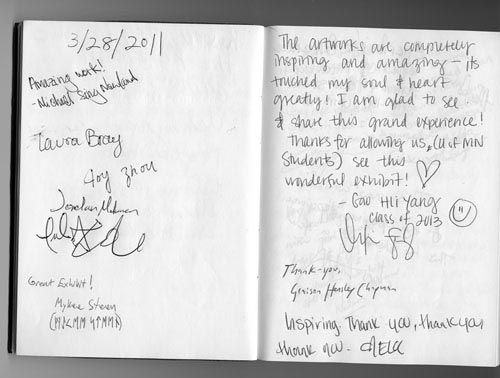 3/28/2011
Amazing work!
- Michael
Laura Bray
Joy Zhou
Jonathan
Great Exhibit!
Mykee Steen
The artworks are completely
inspiring and amazing - its
touched my soul & heart
greatly! I am glad to see
& share this grand experience!
Thanks for allowing us, (U of MN
Students) see this
wonderful exhibit!
- Gao Hli Yang
class of 2013
Thank-you,
Henley Chapman
Inspiring. Thank you, thank you
thank you -